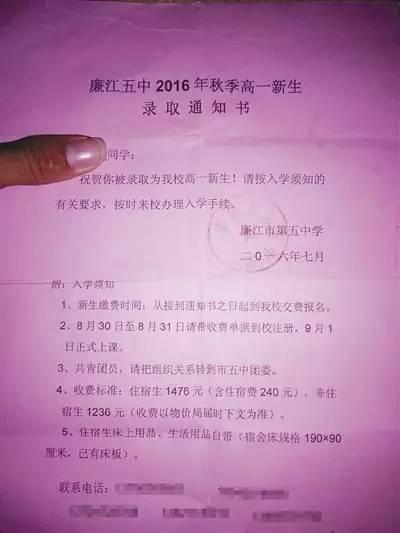 廉江五中 2016 年秋季高一新生
录 取 通 知 书
同学:
祝贺你被录取为我校高一新生!请按入学须知的
有关要求,按时来校办理入学手续。
廉江市第五中学
二0一六年七月
附:入学须知
1、新生缴费时间:从接到通知书之日起到我校交费报名。
2、8 月 30 日至 8 月 31 日请带收费单据到校注册,9 月 1
日正式上课。
3、共青团员,请把组织关系转到市五中团委。
4、收费标准:住宿生 1476 元(含住宿费 240 元),非住
宿生 1236 元(收费以物价局届时下文为准)。
5、住宿生床上用品、生活用品自带(宿舍床规格 190×90
厘米,已有床板)。
联系电话: